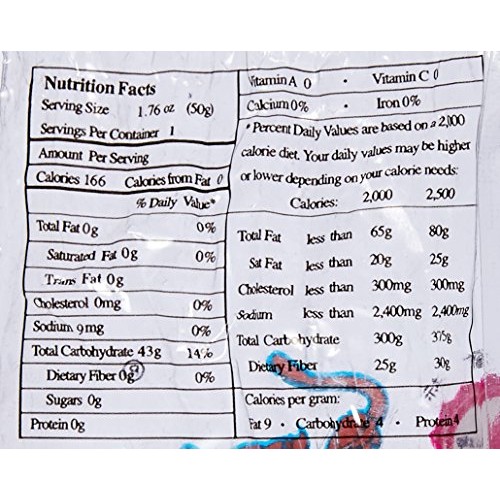 Nutrition Facts
Serving Size 1.76 oz (50g)
Servings Per Container 1
Amount Per Serving
Calories 166 Calories from Fat 0
% Daily Value*
Total Fat 0g 0%
Saturated Fat 0g 0%
Trans Fat 0g
Cholesterol 0mg 0%
Sodium 9mg 0%
Total Carbohydrate 43g 14%
Dietary Fiber 0g 0%
Sugars 0g
Protein 0g
Vitamin A 0 • Vitamin C 0
Calcium 0% • Iron 0%
*Percent Daily Values are based on a 2,000
calorie diet. Your daily values may be higher
or lower depending on your calorie needs:
Calories: 2,000 2,500
Total Fat less than 65g 80g
Sat Fat less than 20g 25g
Cholesterol less than 300mg 300mg
Sodium less than 2,400mg 2,400mg
Total Carbohydrate 300g 375g
Dietary Fiber 25g 30g
Calories per gram:
Fat 9 • Carbohydrate 4 • Protein 4